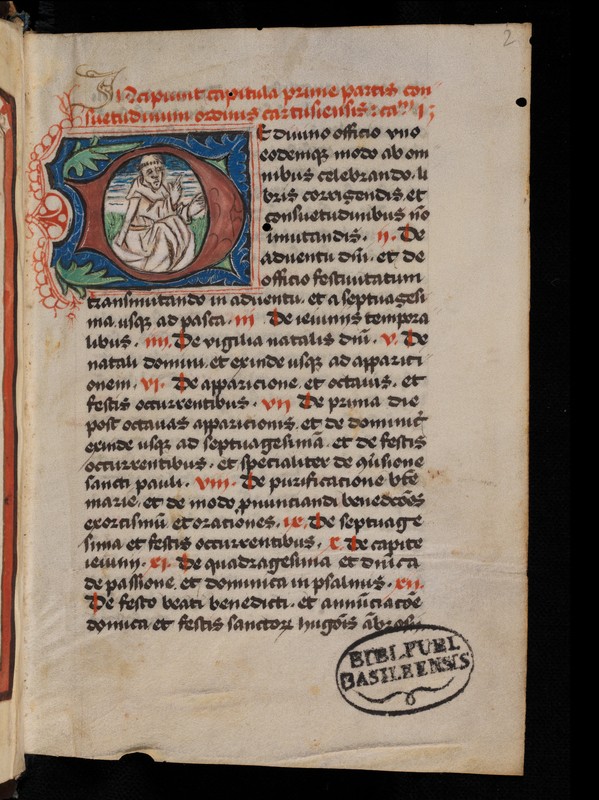 2
Incipiunt capitula prime partis con
suetudinum ordinis cartusiensis: cam 1
De diuino officio vno
eodemqz modo ab om
nibus celebrando. li
bris corrigendis. et
consuetudinibus nō
imutandis. ii. De
aduentu dnī. et de
officio festiuitatum
transmutando in aduentu. et a septuagesi
ma. usqz ad pasca. iii De ieiuniis tempora
libus. iiii. De vigilia natalis dnī. v. De
natali domini. et exinde usqz ad appariti
onem. vi. De apparicione. et octauis. et
festis occurrentibus. vii De prima die
post octauas apparicionis. et de dominic̄
exinde usqz ad septuagesimā. et de festis
occurrentibus. et specialiter de
sancti pauli. viii. De purificatione bt̄e
marie. et de modo pnunciandi benedcōes
exorcismū et orationes. ix. De septuage
sima et festis occurrentibus. x. De capite
ieiunii. xi. De quadragesima et dnīca
de passione. et dominica in psalmis. xii.
De festo beati benedicti. et annūciacōe
domica et festis sanctorꝝ hugōis
BIBL. PUBL
BASILEENSIS